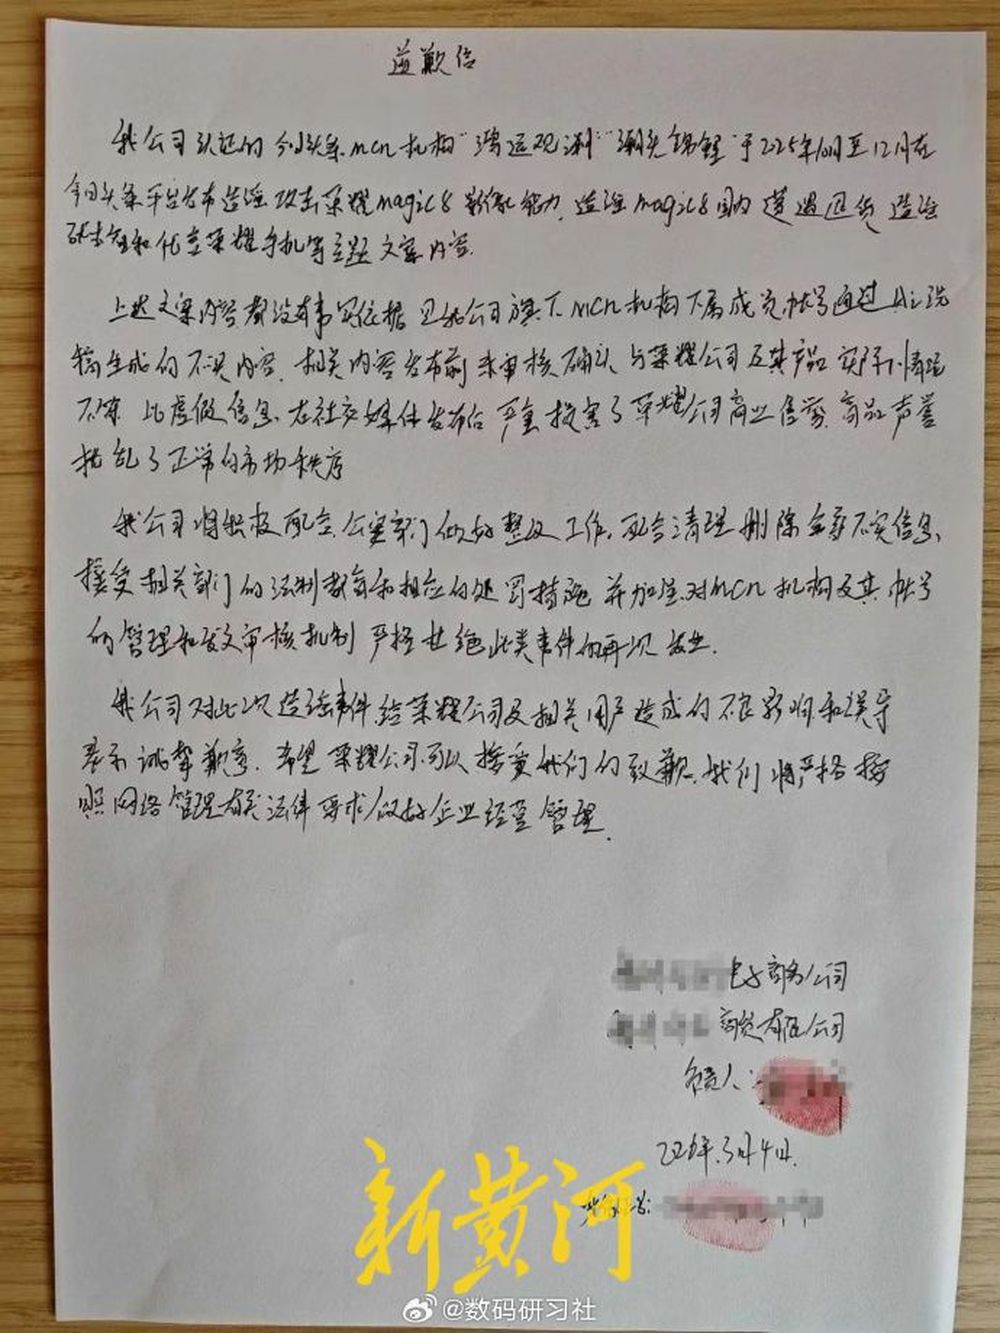 道歉信
我公司认证的今日头条mcn机构"鸿运观测""潮头锦鲤"于2025年10月至12月在
今日头条平台发布造谣攻击荣耀magic8影像能力,造谣magic8国内遭遇退货 造谣
和 荣耀手机等主题文案内容.
上述文案内容都没有事实依据 是我公司旗下mcn机构下属成员帐号通过Ai洗
稿生成的不实内容.相关内容发布前未审核确认 与荣耀公司及其产品实际情况
不符 此虚假信息在社交媒体发布后 严重损害了荣耀公司商业信誉.商品声誉
扰乱了正常的市场秩序
我公司将积极配合.公安部门做好整改工作.配合清理删除全部不实信息.
接受相关部门的法制教育和相应的处罚措施 并加强对mcn机构及其帐号
的管理和发文审核机制 严格杜绝此类事件的再次发生.
我公司对此次造谣事件给荣耀公司及相关用户造成的不良影响和误导
表示诚挚歉意.希望荣耀公司可以接受我们的致歉.我们将严格按
照网络管理有关法律要求做好企业经营管理.
电子商务公司
商贸有限公司
负责人:
2026年3月4日.
新黄河
@数码研习社